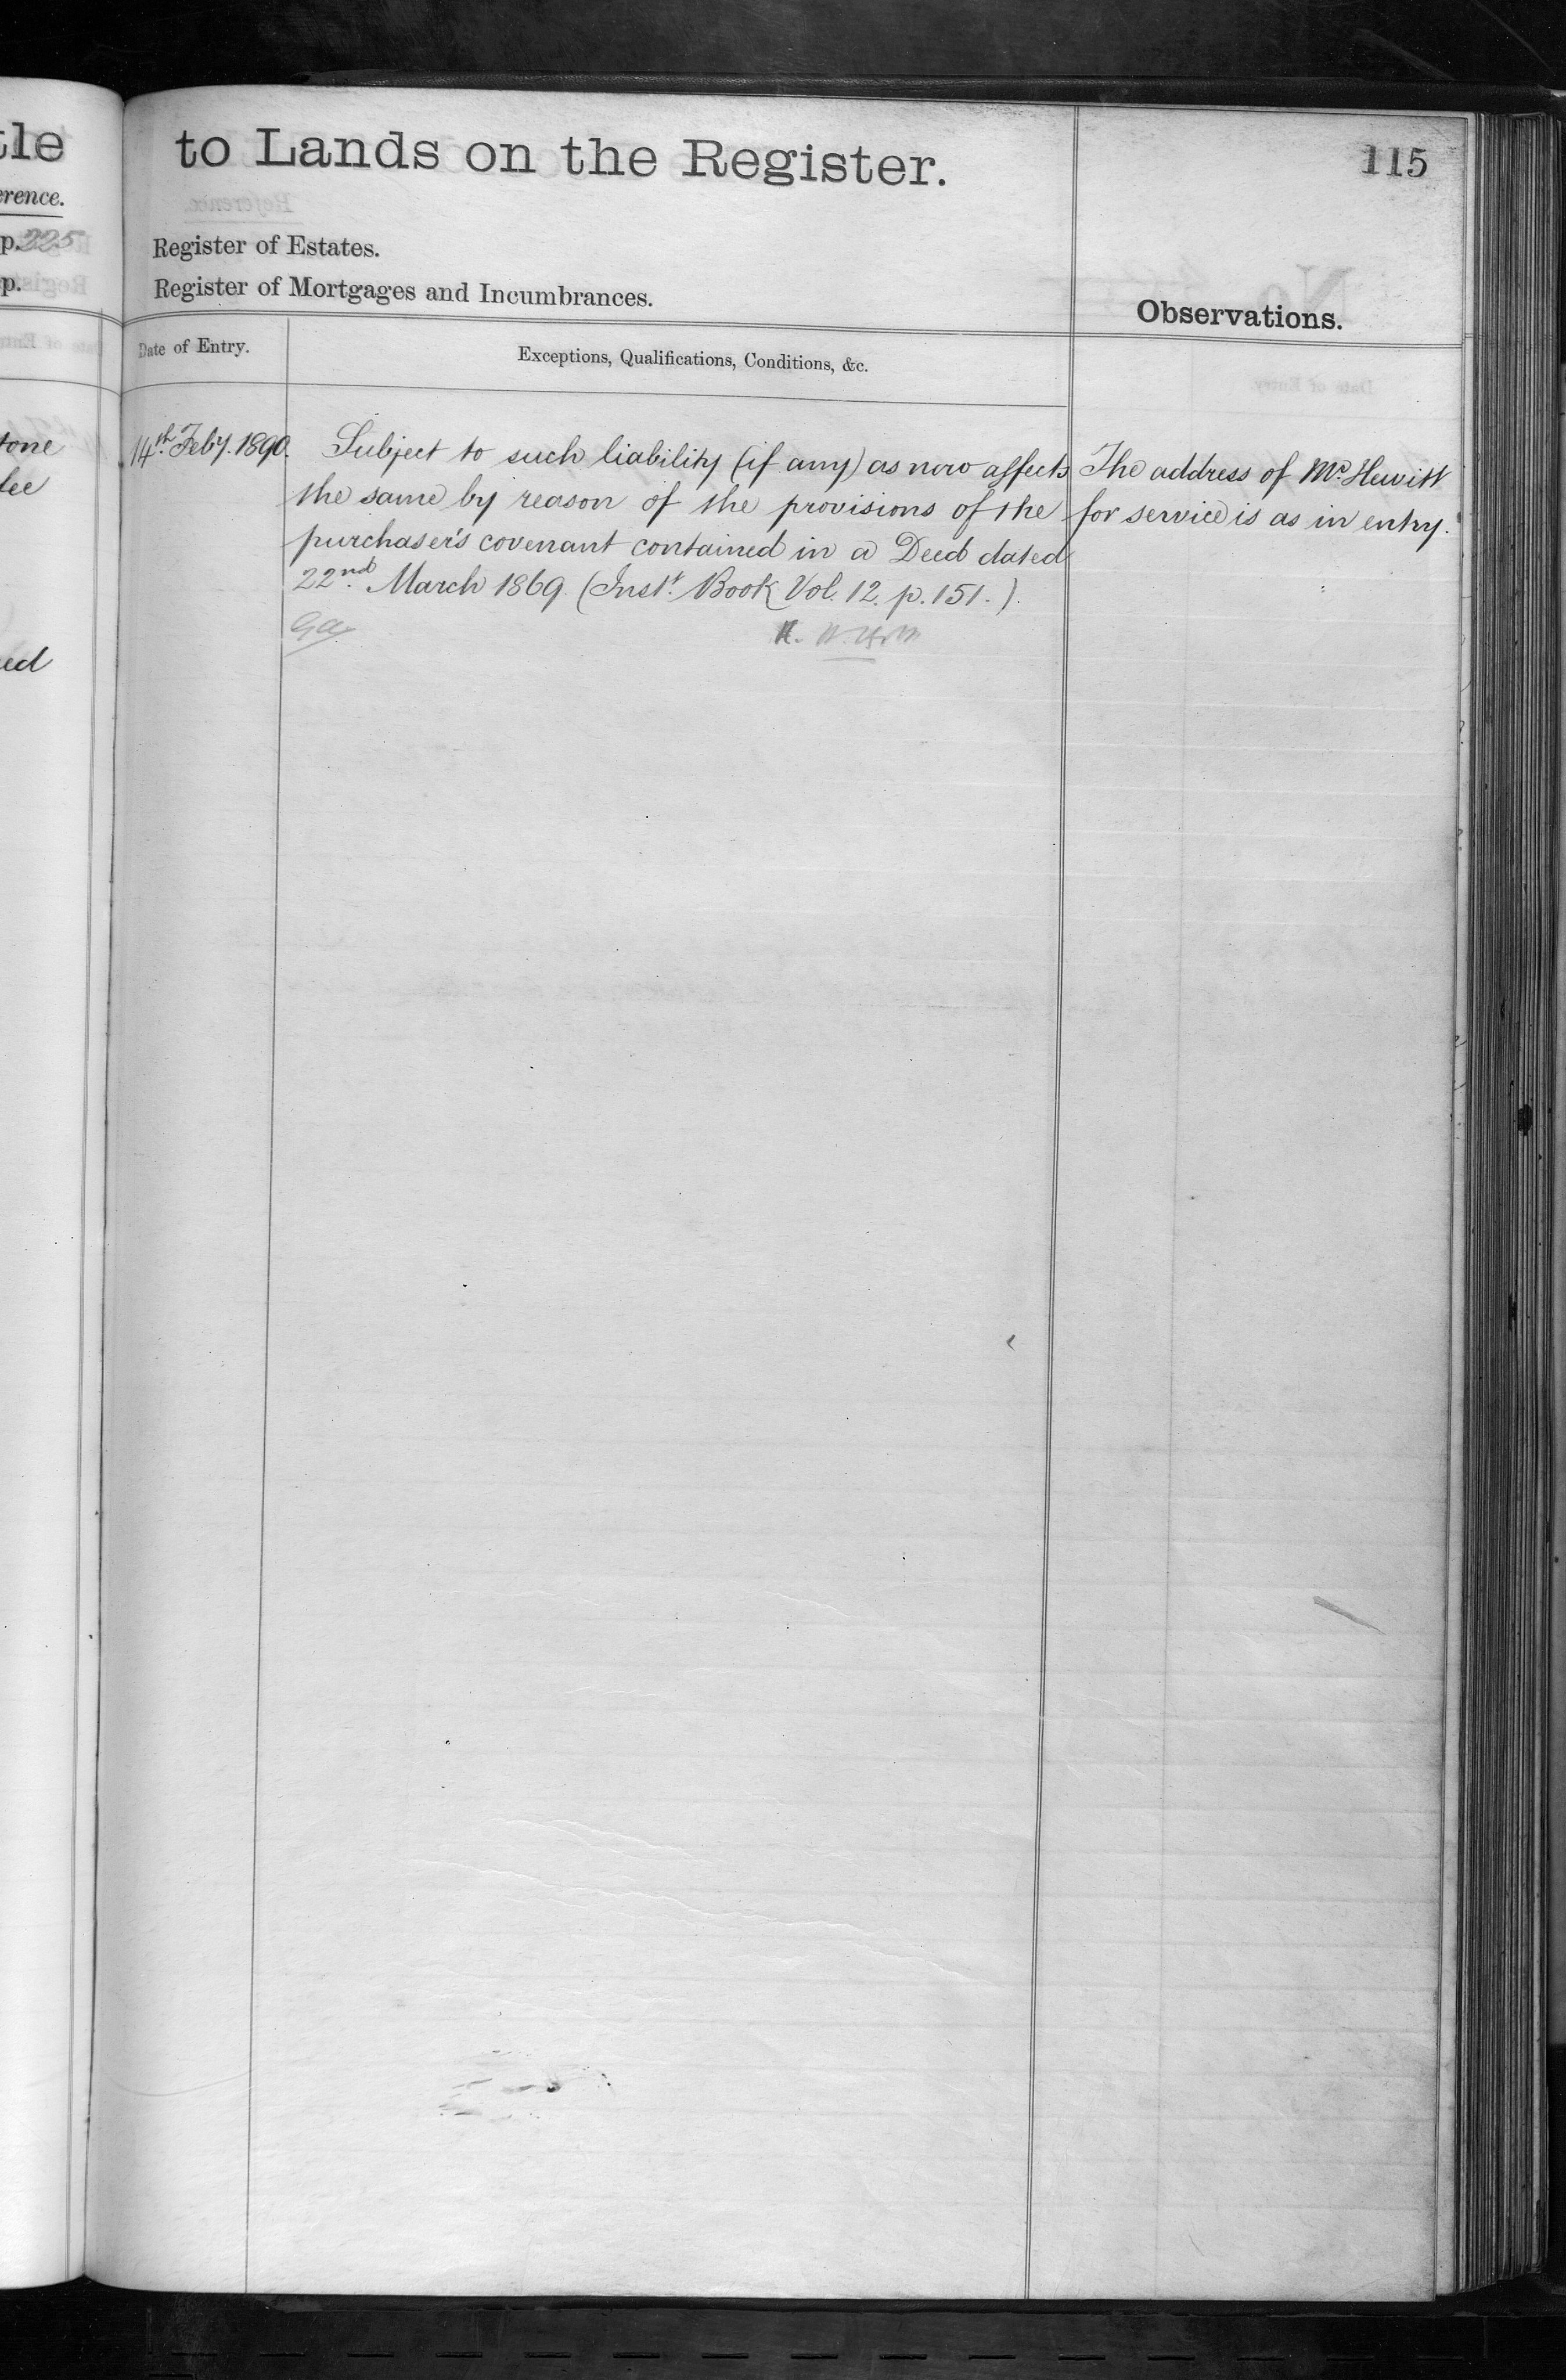 tle
erence.
p. 225
p.
tone
fee
ed
to Lands on the Register.
115
Register of Estates.
Register of Mortgages and Incumbrances.
Observations.
Date of Entry.
Exceptions, Qualifications, Conditions, &c.
14th. Feby. 1890.
Subject to such liability (if any) as now affects
the same by reason of the provisions of the
purchaser's covenant contained in a Deed dated
22nd. March 1869 (Inst. Book Vol. 12. p. 151.).
The address of Mr. Hewitt
for service is as in entry.